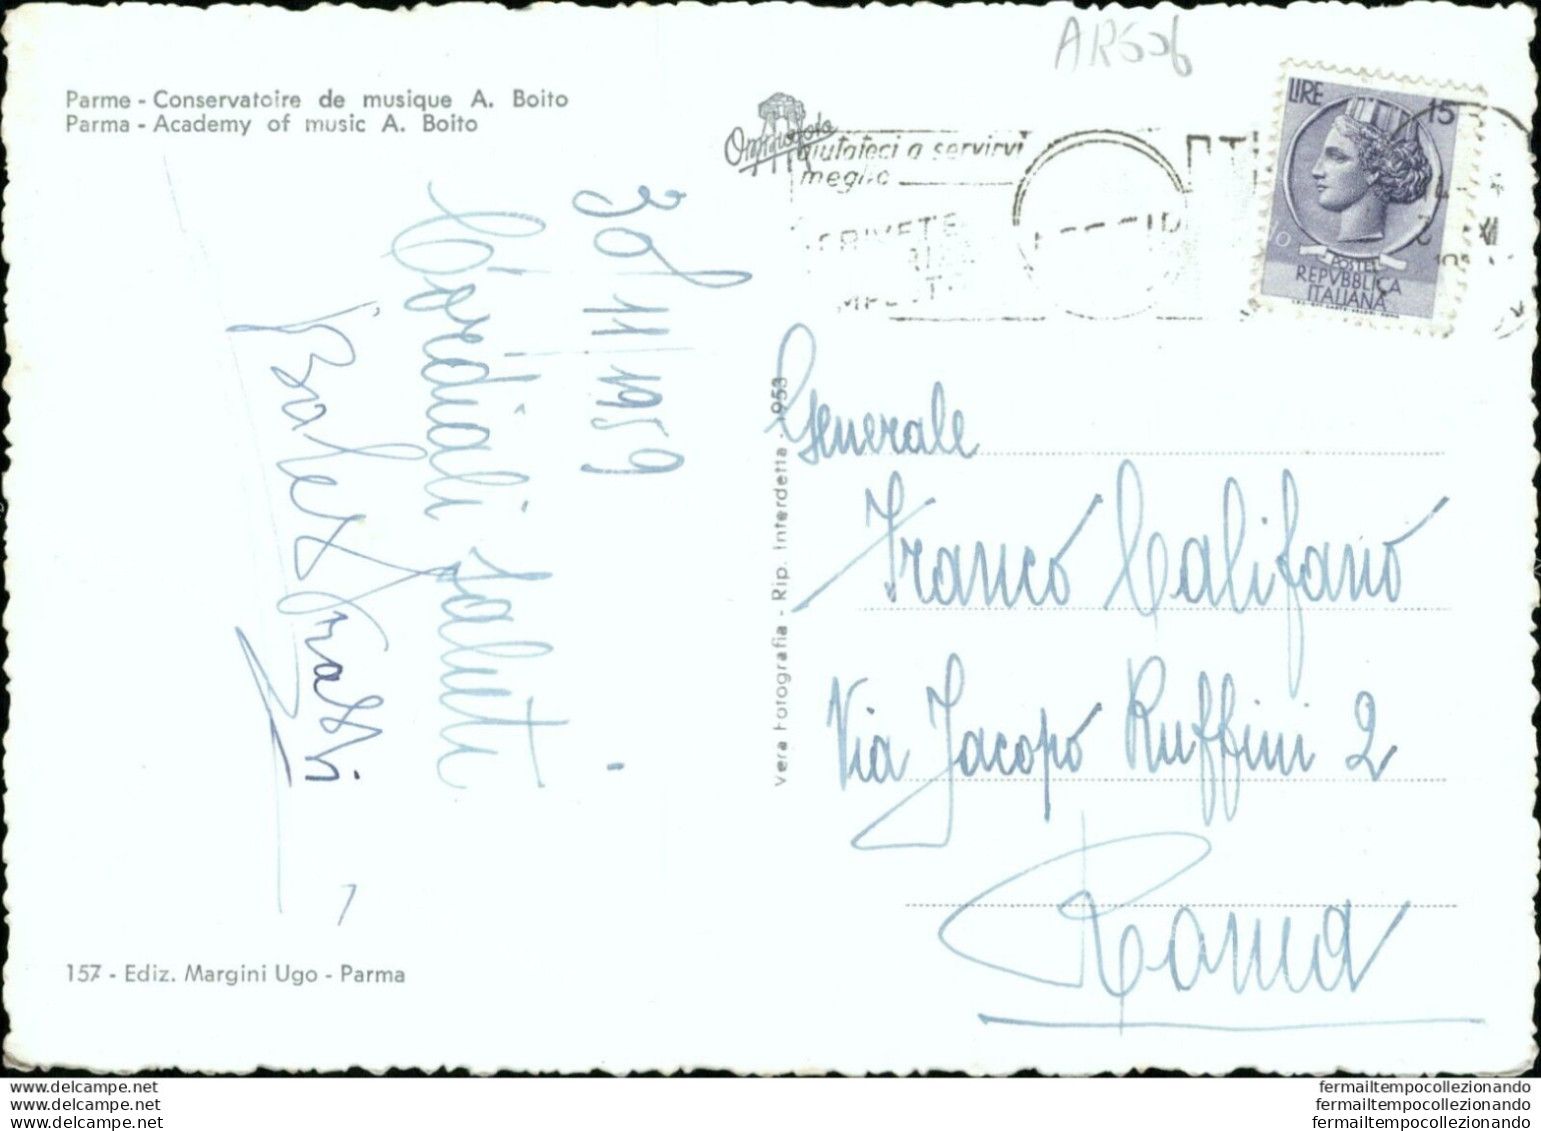 AR506
Parme - Conservatoire de musique A. Boito
Parma - Academy of music A. Boito
Omniafoto
aiutateci a servirvi
meglio
LIRE 15
POSTE
REPVBBLICA
ITALIANA
30 11 1959
Cordiali saluti
Vera Fotografia - Rip. Interdetta - 1953
Generale
Franco Califano
Via Jacopo Ruffini 2
Roma
157 - Ediz. Margini Ugo - Parma
www.delcampe.net
www.delcampe.net
www.delcampe.net
fermailtempocollezionando
fermailtempocollezionando
fermailtempocollezionando